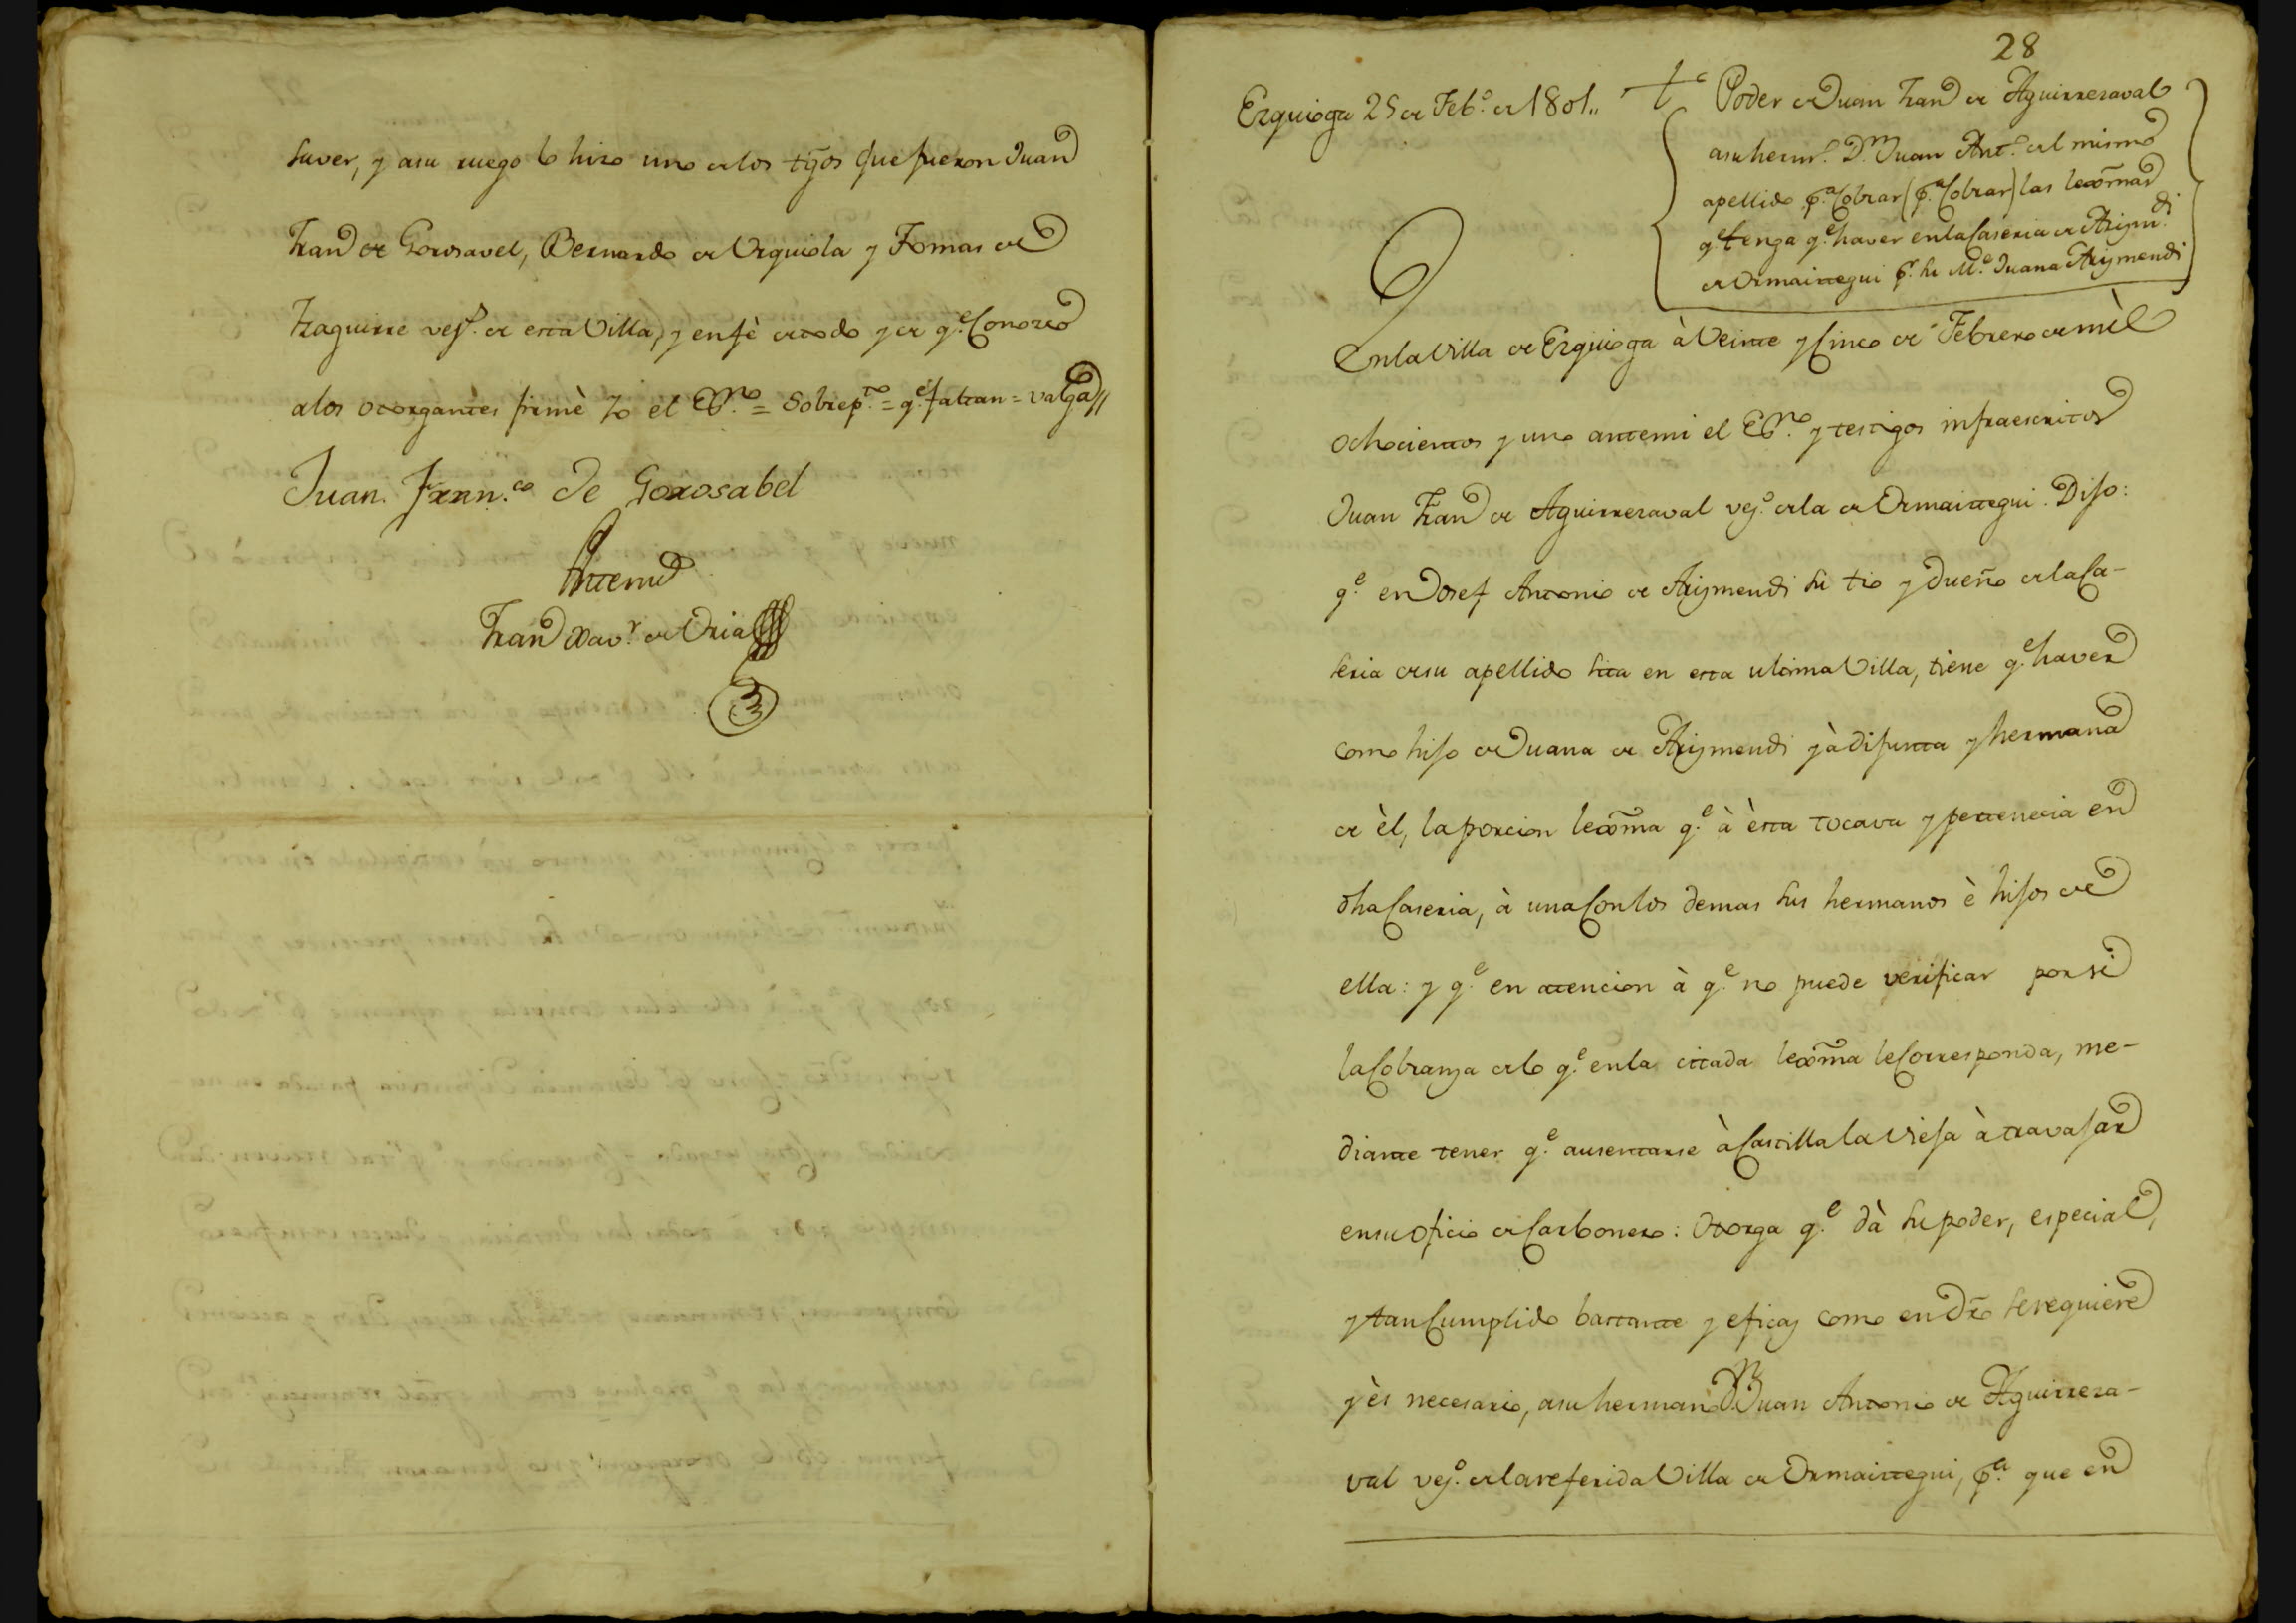 saver, y asu ruego lo hizo uno de los tgōs que fueron Juan
Fran.co de Gorosavel, Bernardo de Urquiola y Tomas de
Yzaguirre vez.s de esta Villa, y en fè de todo y de q.e Conozco
alos otorgantes firmè Yo el Ess.no = Sobrep.to = q.e faltan = valga //
Juan. Fran.co de Gorosabel
Antemi
Fran.co Xav.r de Oria
28
Ezquioga 25 de Feb.o de 1801..
Poder de Juan Fran.co de Aguirrezaval
asu herm.o D.n Juan Ant.o del mismo
apellido p.a Cobrar (p.a Cobrar) las lextmas
q.e tenga q.e haver en la Caseria de Arizm.di
de Ormaiztegui p.r su M.e Juana Arizmendi
En la Villa de Ezquioga à Veinte y Cinco de Febrero de mil
ochocientos y uno antemi el Ess.no y testigos infraescritos
Juan Fran.co de Aguirrezaval vez.o de la de Ormaiztegui. Dijo:
q.e en Josef Antonio de Arizmendi su tio y Dueño de la Ca-
seria de su apellido sita en esta ultima Villa, tiene q.e haver
como hijo de Juana de Arizmendi yà difunta y hermana
de èl, la porcion lextma q.e à èsta tocava y pertenecia en
dha Caseria, à una Con los demas sus hermanos è hijos de
ella: y q.e en atencion à q.e no puede verificar por si
la Cobranza de lo q.e en la citada lextma le Corresponda, me-
diante tener q.e ausentarse à Castilla la Vieja à travajar
en su oficio de Carbonero: Otorga q.e dà su poder, especial,
y tan Cumplido bastante y eficaz como en Dr̃o se requiere
y ès necesario, asu hermano D.n Juan Antonio de Aguirreza-
val vez.o de la referida Villa de Ormaiztegui, p.a que en